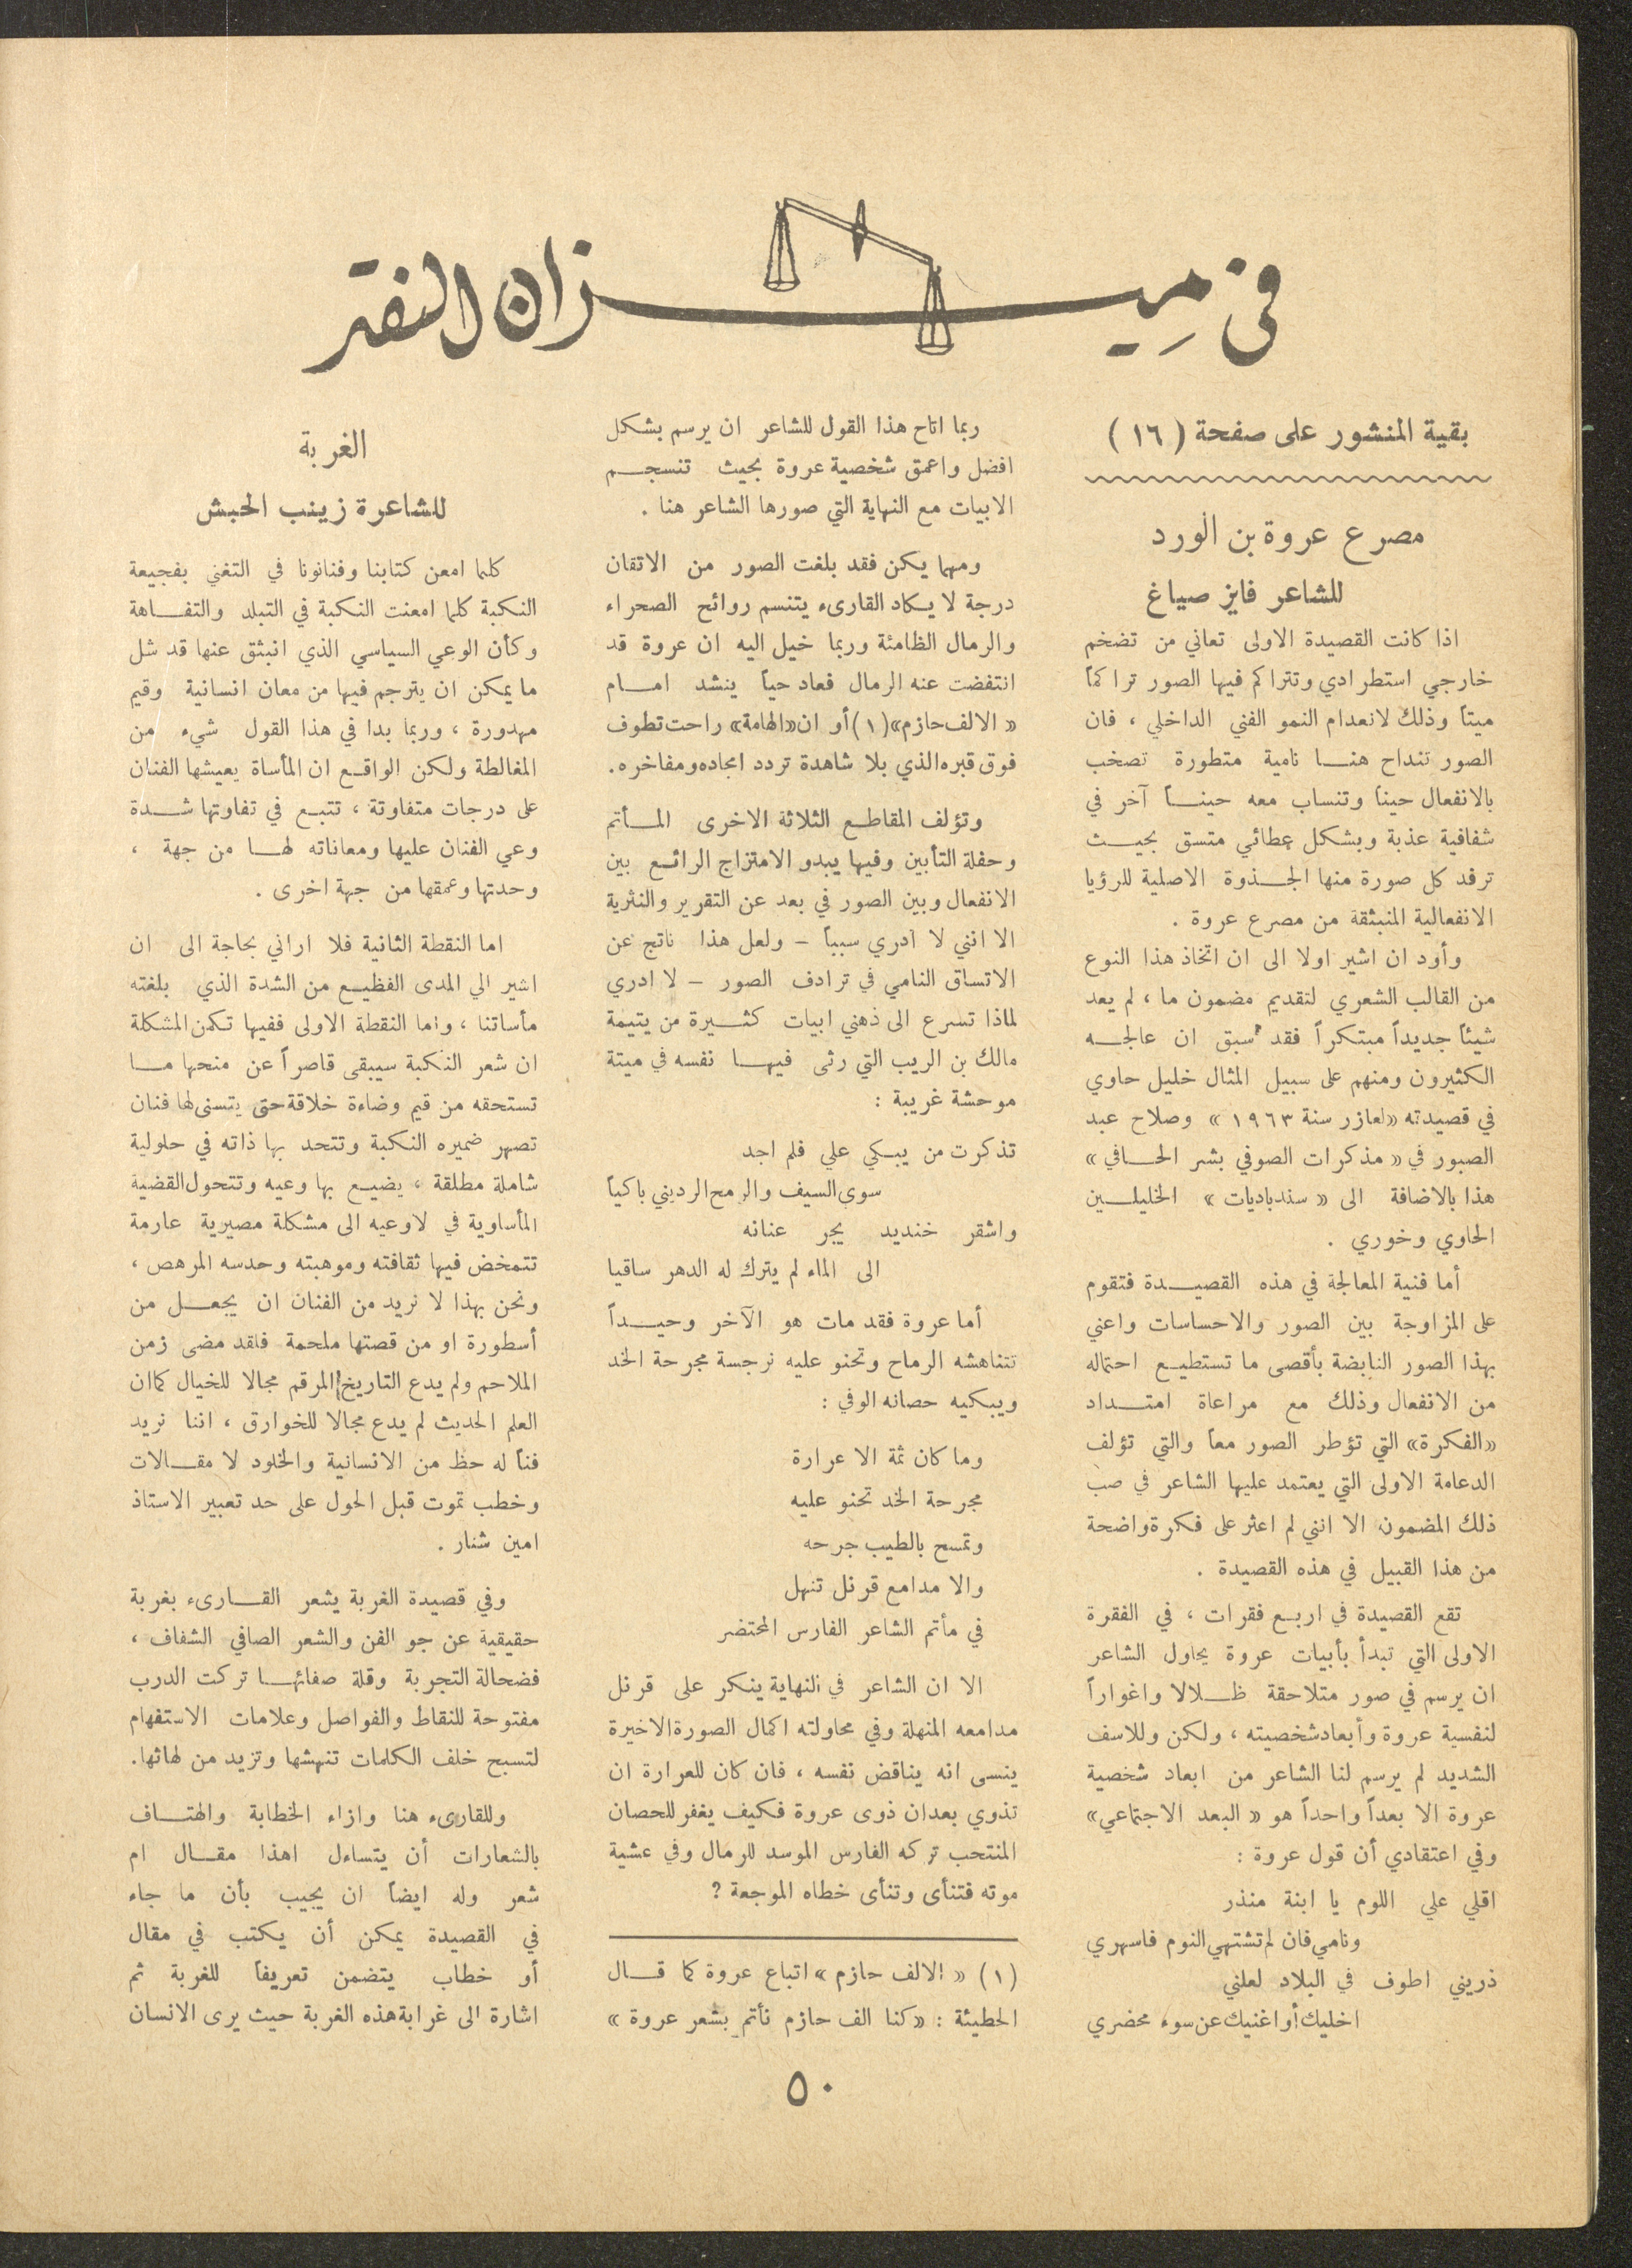 في ميزان النقد
بقية المنشور على صفحة ( ١٦ )
مصرع عروة بن الورد
للشاعر فايز صياغ
اذا كانت القصيدة الاولى تعاني من تضخم
خارجي استطرادي وتتراكم فيها الصور تراكماً
ميتاً وذلك لانعدام النمو الفني الداخلي ، فان
الصور تنداح هنا نامية متطورة تصخب
بالانفعال حيناً وتنساب معه حيناً آخر في
شفافية عذبة وبشكل عطائي متسق بحيث
ترفد كل صورة منها الجذوة الاصلية للرؤيا
الانفعالية المنبثقة من مصرع عروة .
وأود ان اشير اولا الى ان اتخاذ هذا النوع
من القالب الشعري لتقديم مضمون ما ، لم يعد
شيئاً جديداً مبتكراً فقد سبق ان عالجه
الكثيرون ومنهم على سبيل المثال خليل حاوي
في قصيدته «لعازر سنة ١٩٦٣ » وصلاح عبد
الصبور في « مذكرات الصوفي بشر الحافي »
هذا بالاضافة الى « سندباديات » الخليلين
الحاوي وخوري .
أما فنية المعالجة في هذه القصيدة فتقوم
على المزاوجة بين الصور والاحساسات واعني
بهذا الصور النابضة بأقصى ما تستطيع احتماله
من الانفعال وذلك مع مراعاة امتداد
«الفكرة» التي تؤطر الصور معاً والتي تؤلف
الدعامة الاولى التي يعتمد عليها الشاعر في صب
ذلك المضمون الا انني لم اعثر على فكرة واضحة
من هذا القبيل في هذه القصيدة .
تقع القصيدة في اربع فقرات ، في الفقرة
الاولى التي تبدأ بأبيات عروة يحاول الشاعر
ان يرسم في صور متلاحقة ظلالا واغواراً
لنفسية عروة وأبعاد شخصيته ، ولكن وللاسف
الشديد لم يرسم لنا الشاعر من ابعاد شخصية
عروة الا بعداً واحداً هو « البعد الاجتماعي»
وفي اعتقادي أن قول عروة :
اقلي علي اللوم يا ابنة منذر
ونامي فان لم تشتهي النوم فاسهري
ذريني اطوف في البلاد لعلني
اخليك أو اغنيك عن سوء محضري
ربما اتاح هذا القول للشاعر ان يرسم بشكل
افضل واعمق شخصية عروة بحيث تنسجم
الابيات مع النهاية التي صورها الشاعر هنا .
ومهما يكن فقد بلغت الصور من الاتقان
درجة لا يكاد القارىء يتنسم روائح الصحراء
والرمال الظامئة وربما خيل اليه ان عروة قد
انتفضت عنه الرمال فعاد حياً ينشد امام
« الالف حازم»(١) أو ان «الهامة» راحت تطوف
فوق قبره الذي بلا شاهدة تردد امجاده ومفاخره.
وتؤلف المقاطع الثلاثة الاخرى المأتم
وحفلة التأبين وفيها يبدو الامتزاج الرائع بين
الانفعال وبين الصور في بعد عن التقرير والنثرية
الا انني لا ادري سبباً – ولعل هذا ناتج عن
الاتساق النامي في ترادف الصور – لا ادري
لماذا تسرع الى ذهني ابيات كثيرة من يتيمة
مالك بن الريب التي رثى فيها نفسه في ميتة
موحشة غريبة :
تذكرت من يبكي علي فلم اجد
سوى السيف والرمح الرديني باكياً
واشقر خنديد يجر عنانه
الى الماء لم يترك له الدهر ساقيا
أما عروة فقد مات هو الآخر وحيداً
تتناهشه الرماح وتحنو عليه نرجسة مجرحة الخد
ويبكيه حصانه الوفي :
وما كان ثمة الا عرارة
مجرحة الخد تحنو عليه
وتمسح بالطيب جرحه
والا مدامع قرنل تنهل
في مأتم الشاعر الفارس المحتضر
الا ان الشاعر في النهاية ينكر على قرنل
مدامعه المنهلة وفي محاولته اكمال الصورة الاخيرة
ينسى انه يناقض نفسه ، فان كان للعرارة ان
تذوي بعد ان ذوى عروة فكيف يغفر للحصان
المنتحب تركه الفارس الموسد للرمال وفي عشية
موته فتنأى وتنأى خطاه الموجعة ؟
(١) « الالف حازم » اتباع عروة كما قال
الحطيئة : «كنا الف حازم نأتم بشعر عروة »
الغربة
للشاعرة زينب الحبش
كلما امعن كتابنا وفنانونا في التغني بفجيعة
النكبة كلما امعنت النكبة في التبلد والتفاهة
وكأن الوعي السياسي الذي انبثق عنها قد شل
ما يمكن ان يترجم فيها من معان انسانية وقيم
مهدورة ، وربما بدا في هذا القول شيء من
المغالطة ولكن الواقع ان المأساة يعيشها الفنان
على درجات متفاوتة ، تتبع في تفاوتها شدة
وعي الفنان عليها ومعاناته لها من جهة ،
وحدتها وعمقها من جهة اخرى .
اما النقطة الثانية فلا اراني بحاجة الى ان
اشير الي المدى الفظيع من الشدة الذي بلغته
مأساتنا ، واما النقطة الاولى ففيها تكمن المشكلة
ان شعر النكبة سيبقى قاصراً عن منحها ما
تستحقه من قيم وضاءة خلاقة حتى يتسنى لها فنان
تصهر ضميره النكبة وتتحد بها ذاته في حلولية
شاملة مطلقة ، يضيع بها وعيه وتتحول القضية
المأساوية في لاوعيه الى مشكلة مصيرية عارمة
تتمخض فيها ثقافته وموهبته وحدسه المرهص ،
ونحن بهذا لا نريد من الفنان ان يجعل من
أسطورة او من قصتها ملحمة فلقد مضى زمن
الملاحم ولم يدع التاريخ المرقم مجالا للخيال كما ان
العلم الحديث لم يدع مجالا للخوارق ، اننا نريد
فناً له حظ من الانسانية والخلود لا مقالات
وخطب تموت قبل الحول على حد تعبير الاستاذ
امين شنار .
وفي قصيدة الغربة يشعر القارىء بغربة
حقيقية عن جو الفن والشعر الصافي الشفاف ،
فضحالة التجربة وقلة صفائها تركت الدرب
مفتوحة للنقاط والفواصل وعلامات الاستفهام
لتسبح خلف الكلمات تنهشها وتزيد من لهاثها.
وللقارىء هنا وازاء الخطابة والهتاف
بالشعارات أن يتساءل اهذا مقال ام
شعر وله ايضاً ان يجيب بأن ما جاء
في القصيدة يمكن أن يكتب في مقال
أو خطاب يتضمن تعريفاً للغربة ثم
اشارة الى غرابة هذه الغربة حيث يرى الانسان
٥٠